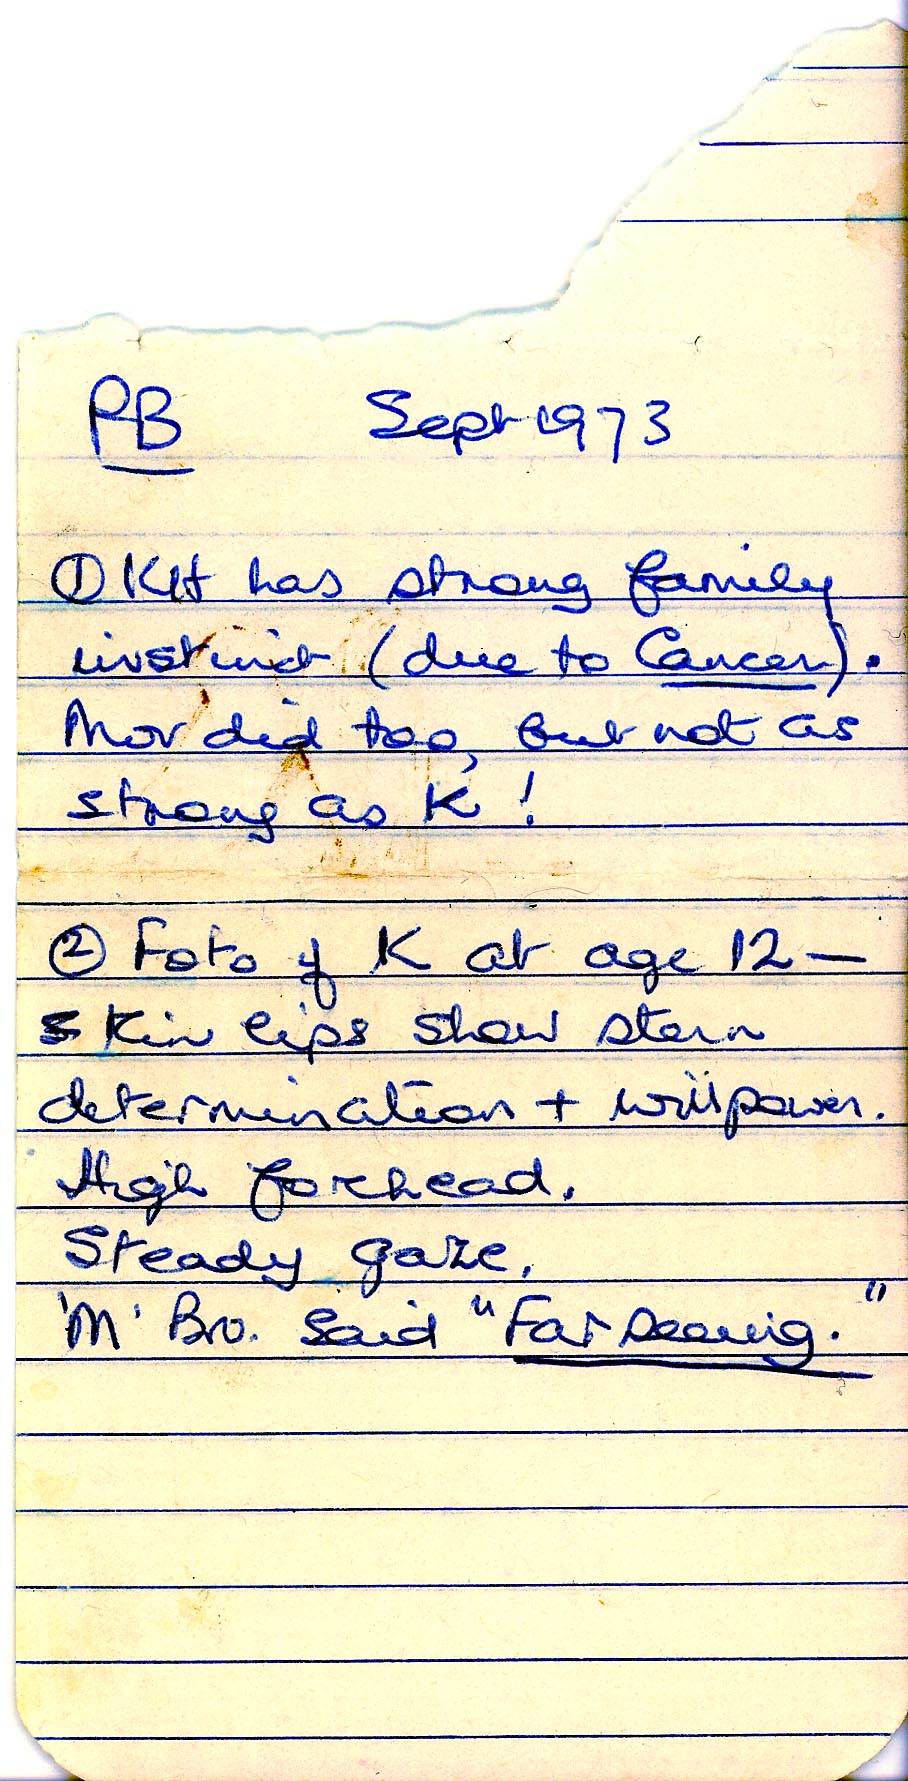 PB Sept 1973
① KH has strong family
instinct (due to Cancer).
Mor did too, but not as
strong as K !
② Foto of K at age 12 —
lips show stern
determination + willpower.
High forehead.
Steady gaze.
'M' Bro. said "Far Seeing."